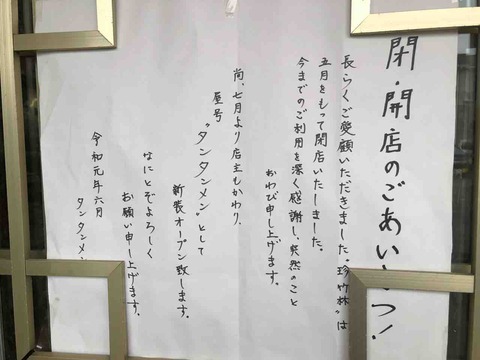 閉・開店のごあいさつ!
長らくご愛顧いただきました〝珍竹林〟は
五月をもって閉店いたしました。
今までのご利用を深く感謝し、突然のこと
おわび申し上げます。
尚、七月より店主もかわり、
屋号
〝タンタンメン〟として
新装オープン致します。
なにとぞよろしく
お願い申し上げます。
令和元年六月
タンタンメン